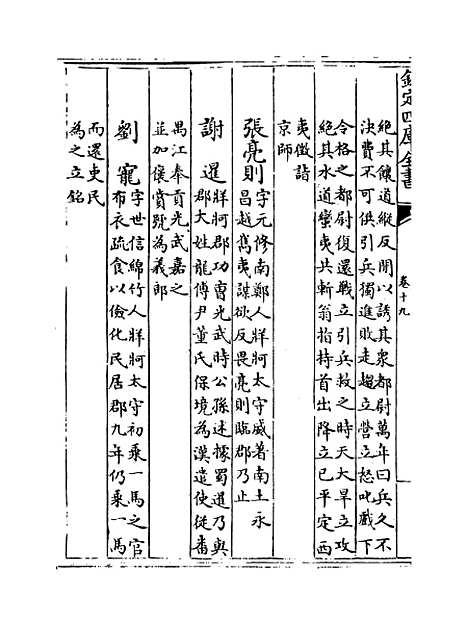 欽定四庫全書
卷十九
絶其饟道縱反間以誘其衆都尉萬年曰兵久不
決費不可供引兵獨進敗走趨立營立怒叱戲下
令格之都尉復還戰立引兵救之時天大旱立攻
絶其水道蠻夷共斬翁指持首出降立已平定西
夷徴詣
京師
張亮則字元修南鄭人牂牁太守威著南土永
昌越嶲夷謀欲反畏亮則臨郡乃止
謝暹牂牁郡功曹光武時公孫述據蜀暹乃與
郡大姓龍傅尹董氏保境為漢遣使從番
禺江奉貢光武嘉之
並加襃賞號為義郎
劉寵字世信綿竹人牂牁太守初乘一馬之官
布衣疏食以儉化民居郡九年仍乘一馬
而還吏民
為之立銘